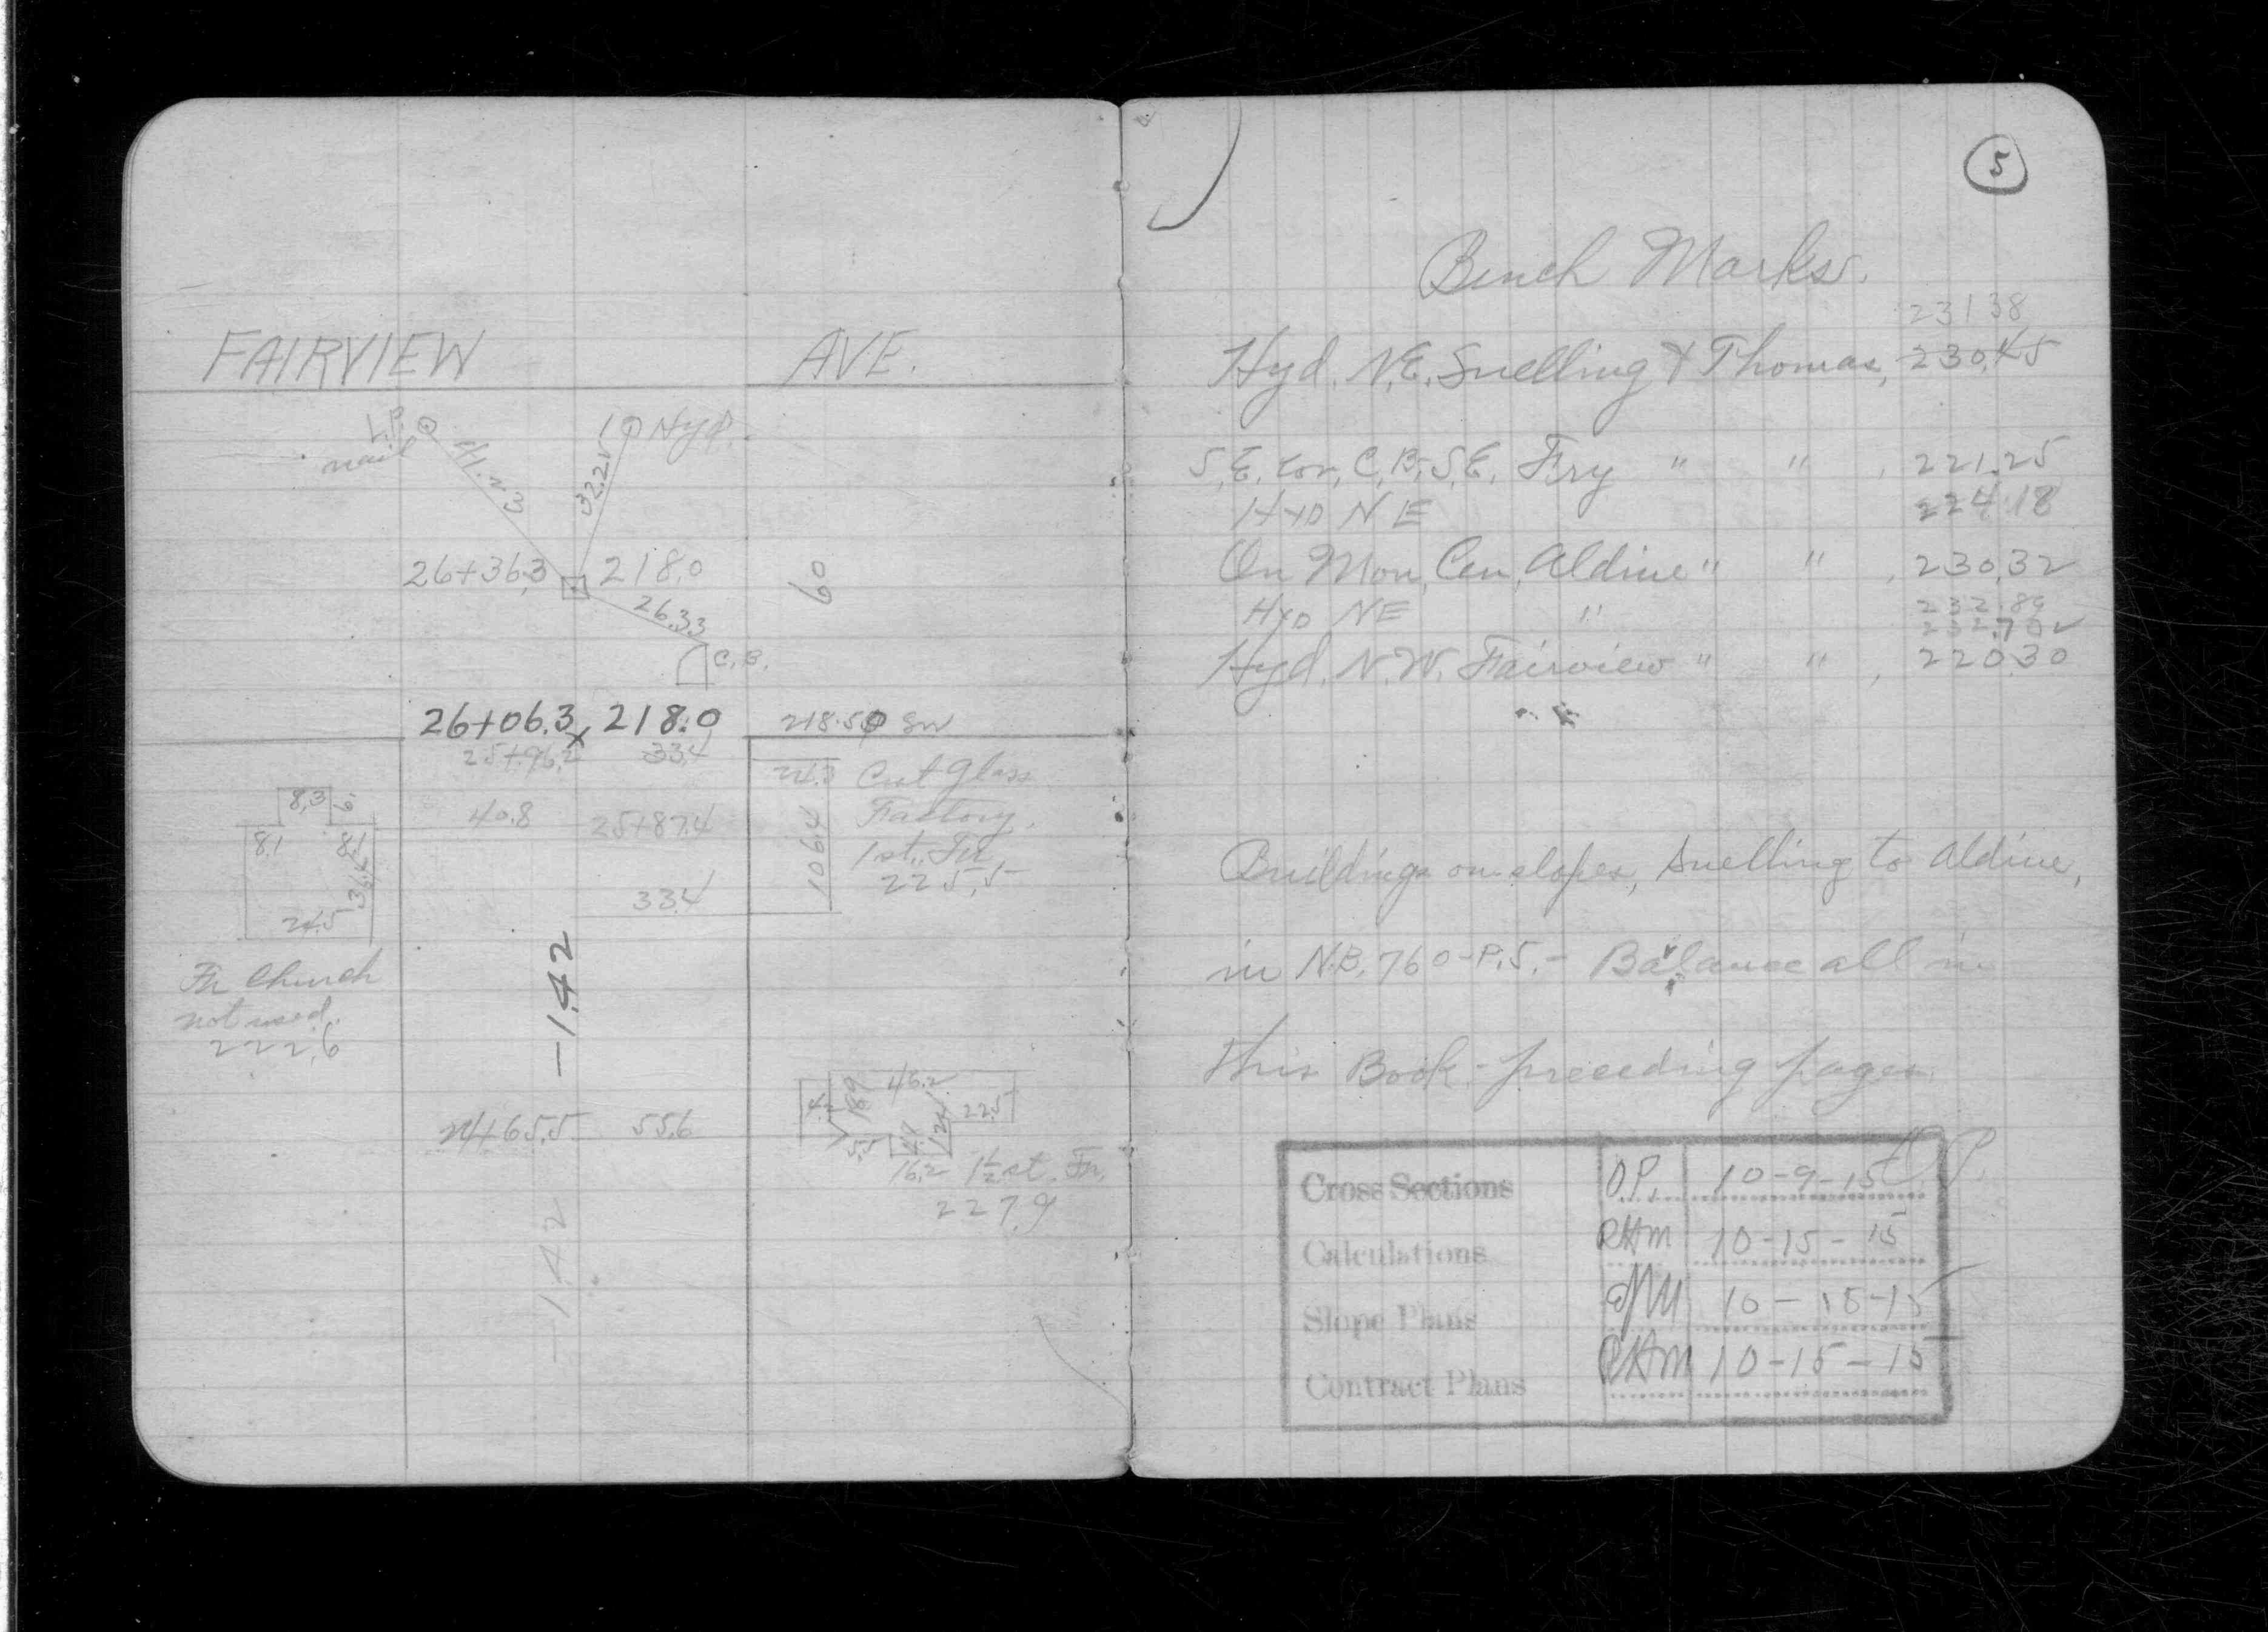 FAIRVIEW AVE.
L.P. Hyd.
nail
41.23
32.21
26+36.3 218.0
60
26.33
C.B.
26+06.3 218.0 218.50 SW
25+96.2 33.4
24.3 Cut Glass
8.3 6
40.8 25+87.4 Factory.
8.1 8.1
36.4
106.4
1 st. Fr.
225.5
33.4
24.5
-1.42
Fr Church
not used.
222.6
24+65.5 55.6
4.2 18.9 46.2
22.5
5.5 4.9 12.4
16.2 1½ st. Fr.
227.9
-1.42
5
Bench Marks.
231 38
Hyd. N.E. Snelling & Thomas, 230.45
S.E. cor. C.B. S.E. Fry " " , 221.25
HYD NE 224.18
On Mon. Cen. Aldine " " , 230.32
HYD NE " 232.89
232.70
Hyd. N.W. Fairview " " , 220.30
Buildings on slopes, Snelling to Aldine,
in N.B. 760-P.5.- Balance all in
this Book - preceding pages.
O.P.
Cross Sections O.P. 10-9-15
Calculations RHM 10-15-15
Slope Plans 10-15-15
Contract Plans RHM 10-15-15